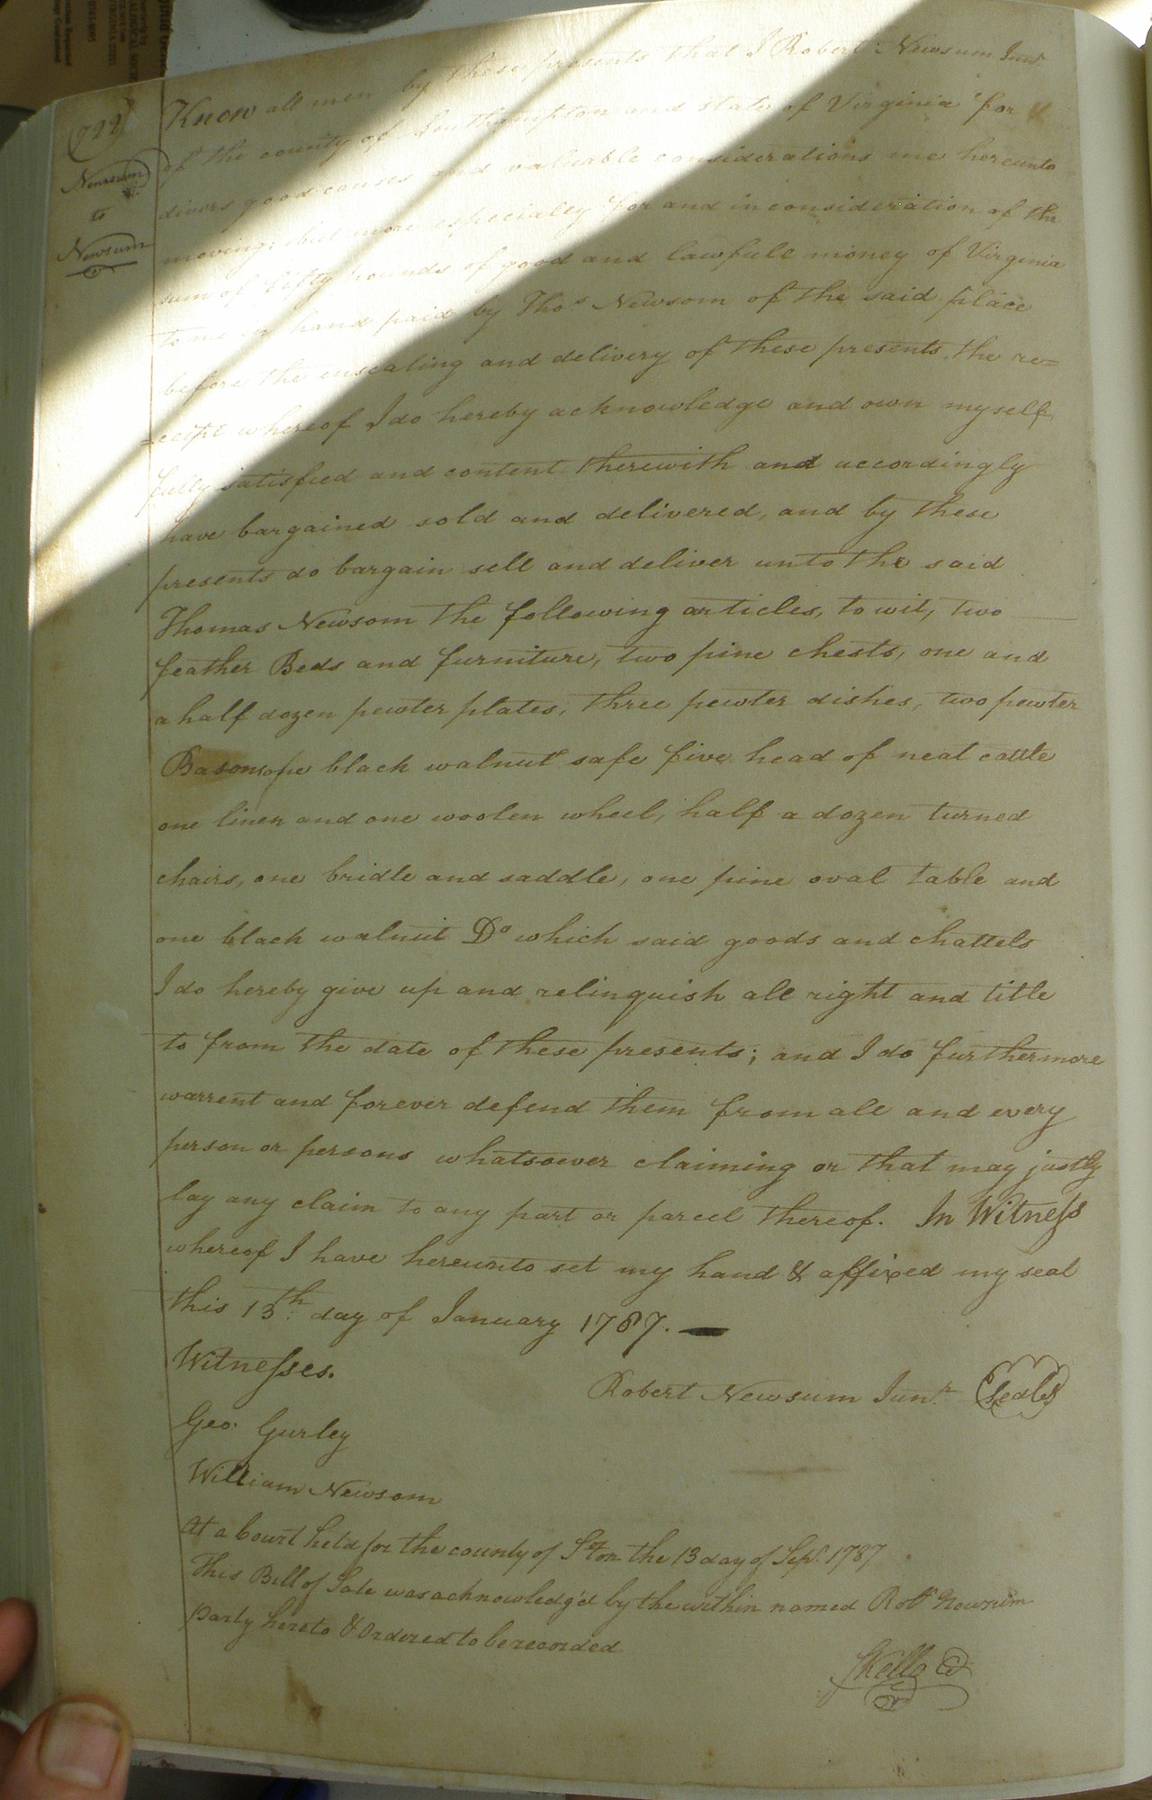 722
Newsum
to
Newsum
Know all men by these presents that I Robert Newsum Junr.
of the county of Southampton and state of Virginia for
divers good causes and valuable considerations me hereunto
moving but more especialey for and in consideration of the
sum of fifty pounds of good and lawfull money of Virginia
to me in hand paid by Thos Newsom of the said place
before the ensealing and delivery of these presents, the re=
=ceipt whereof I do hereby acknowledge and own myself
fully satisfied and content therewith and accordingly
have bargained sold and delivered, and by these
presents do bargain sell and deliver unto the said
Thomas Newsom the following articles, to wit, two
feather Beds and furniture, two pine chests, one and
a half dozen pewter plates, three pewter dishes, two pewter
Basons, one black walnut safe five head of neat cattle
one linen and one woolen wheel, half a dozen turned
chairs, one bridle and saddle, one pine oval table and
one black walnut Do which said goods and chattels
I do hereby give up and relinquish all right and title
to from the date of these presents; and I do furthermore
warrent and forever defend them from all and every
person or persons whatsoever claiming or that may justly
lay any claim to any part or parcel thereof. In Witness
whereof I have hereunto set my hand & affixed my seal
this 13th. day of January 1787.
Witnesses.
Robert Newsum Junr. Seal
Geo. Gurley
William Newsom
At a Court held for the county of Sºton the 13 day of Sepr. 1787
This Bill of Sale was acknowledg'd by the within named Robt Newsum
party hereto & Ordered to be recorded